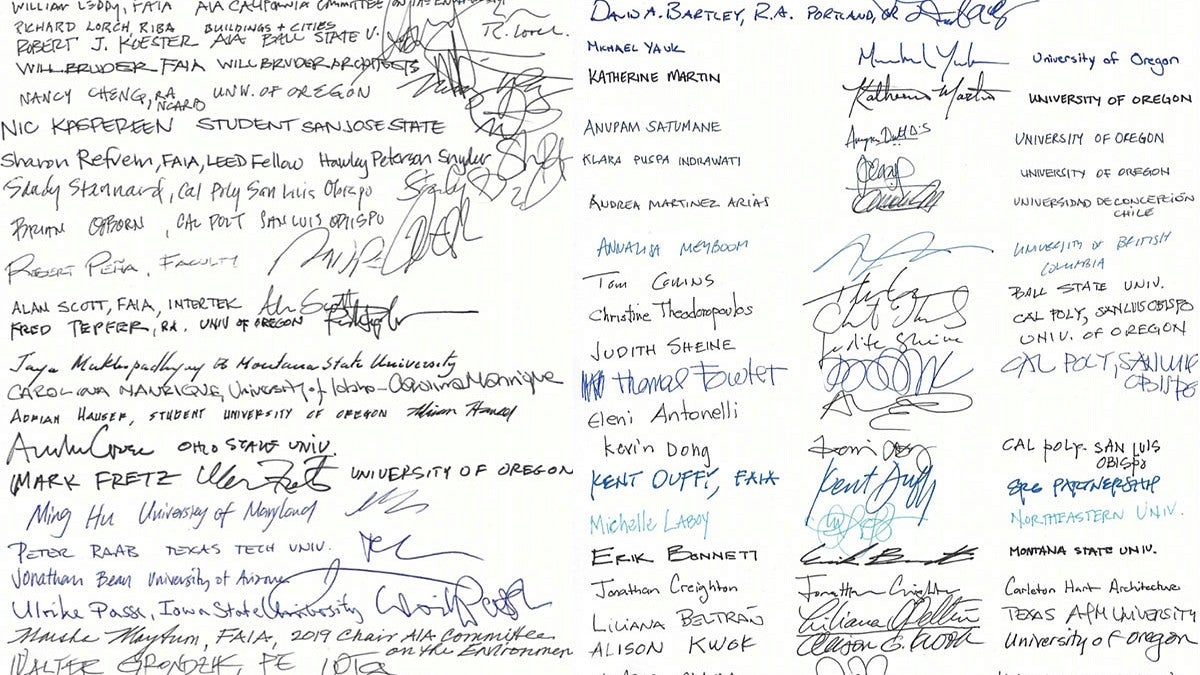 WILLIAM LEDDY, FAIA AIA CALIFORNIA COMMITTEE ON THE ENVIRONMENT
RICHARD LORCH, RIBA BUILDINGS + CITIES R. Lorch
ROBERT J. KOESTER AIA BALL STATE U.
WILL BRUDER FAIA WILL BRUDER ARCHITECTS
NANCY CHENG, RA, NCARB UNIV. OF OREGON
NIC KASPEREEN STUDENT SAN JOSE STATE
Sharon Refvem, FAIA, LEED Fellow Hawley Peterson Snyder
Stannard, Cal Poly San Luis Obispo
BRIAN OSBORN, CAL POLY SAN LUIS OBISPO
ROBERT PEÑA, FACULTY
ALAN SCOTT, FAIA, INTERTEK Alan Scott
FRED TEPFER, RA. UNIV OF OREGON
Jaya Mukhopadhyay Montana State University
CAROLINA MANRIQUE, University of Idaho - Carolina Manrique
ADRIAN HAUSER, STUDENT UNIVERSITY OF OREGON
OHIO STATE UNIV.
MARK FRETZ UNIVERSITY OF OREGON
Ming Hu University of Maryland
PETER RAAB TEXAS TECH UNIV.
Jonathan Bean University of Arizona
Ulrike Passe, Iowa State University
Marsha Maytum, FAIA, 2019 Chair AIA Committee
on the Environment
WALTER GRONDZIK, PE
DAVID A. BARTLEY, R.A. PORTLAND, OR
MICHAEL YAUK University of Oregon
KATHERINE MARTIN Katherine Martin UNIVERSITY OF OREGON
ANUPAM SATUMANE UNIVERSITY OF OREGON
KLARA PUSPA INDRAWATI UNIVERSITY OF OREGON
ANDREA MARTINEZ ARIAS UNIVERSIDAD DE CONCEPCIÓN
CHILE
ANNALISA MEYBOOM UNIVERSITY OF BRITISH
COLUMBIA
Tom COLLINS BALL STATE UNIV.
Christine Theodoropoulos CAL POLY, SAN LUIS OBISPO
JUDITH SHEINE Judith Sheine UNIV. OF OREGON
Thomas Fowler CAL POLY, SAN LUIS
OBISPO
Eleni Antonelli
Kevin Dong CAL POLY. SAN LUIS
OBISPO
KENT DUFFY, FAIA Kent Duffy SRG PARTNERSHIP
Michelle LABOY NORTHEASTERN UNIV.
ERIK BONNETT MONTANA STATE UNIV.
Jonathan Creighton Carleton Hart Architecture
LILIANA BELTRÁN Liliana Beltrán TEXAS A&M UNIVERSITY
ALISON KWOK Alison G. Kwok University of Oregon